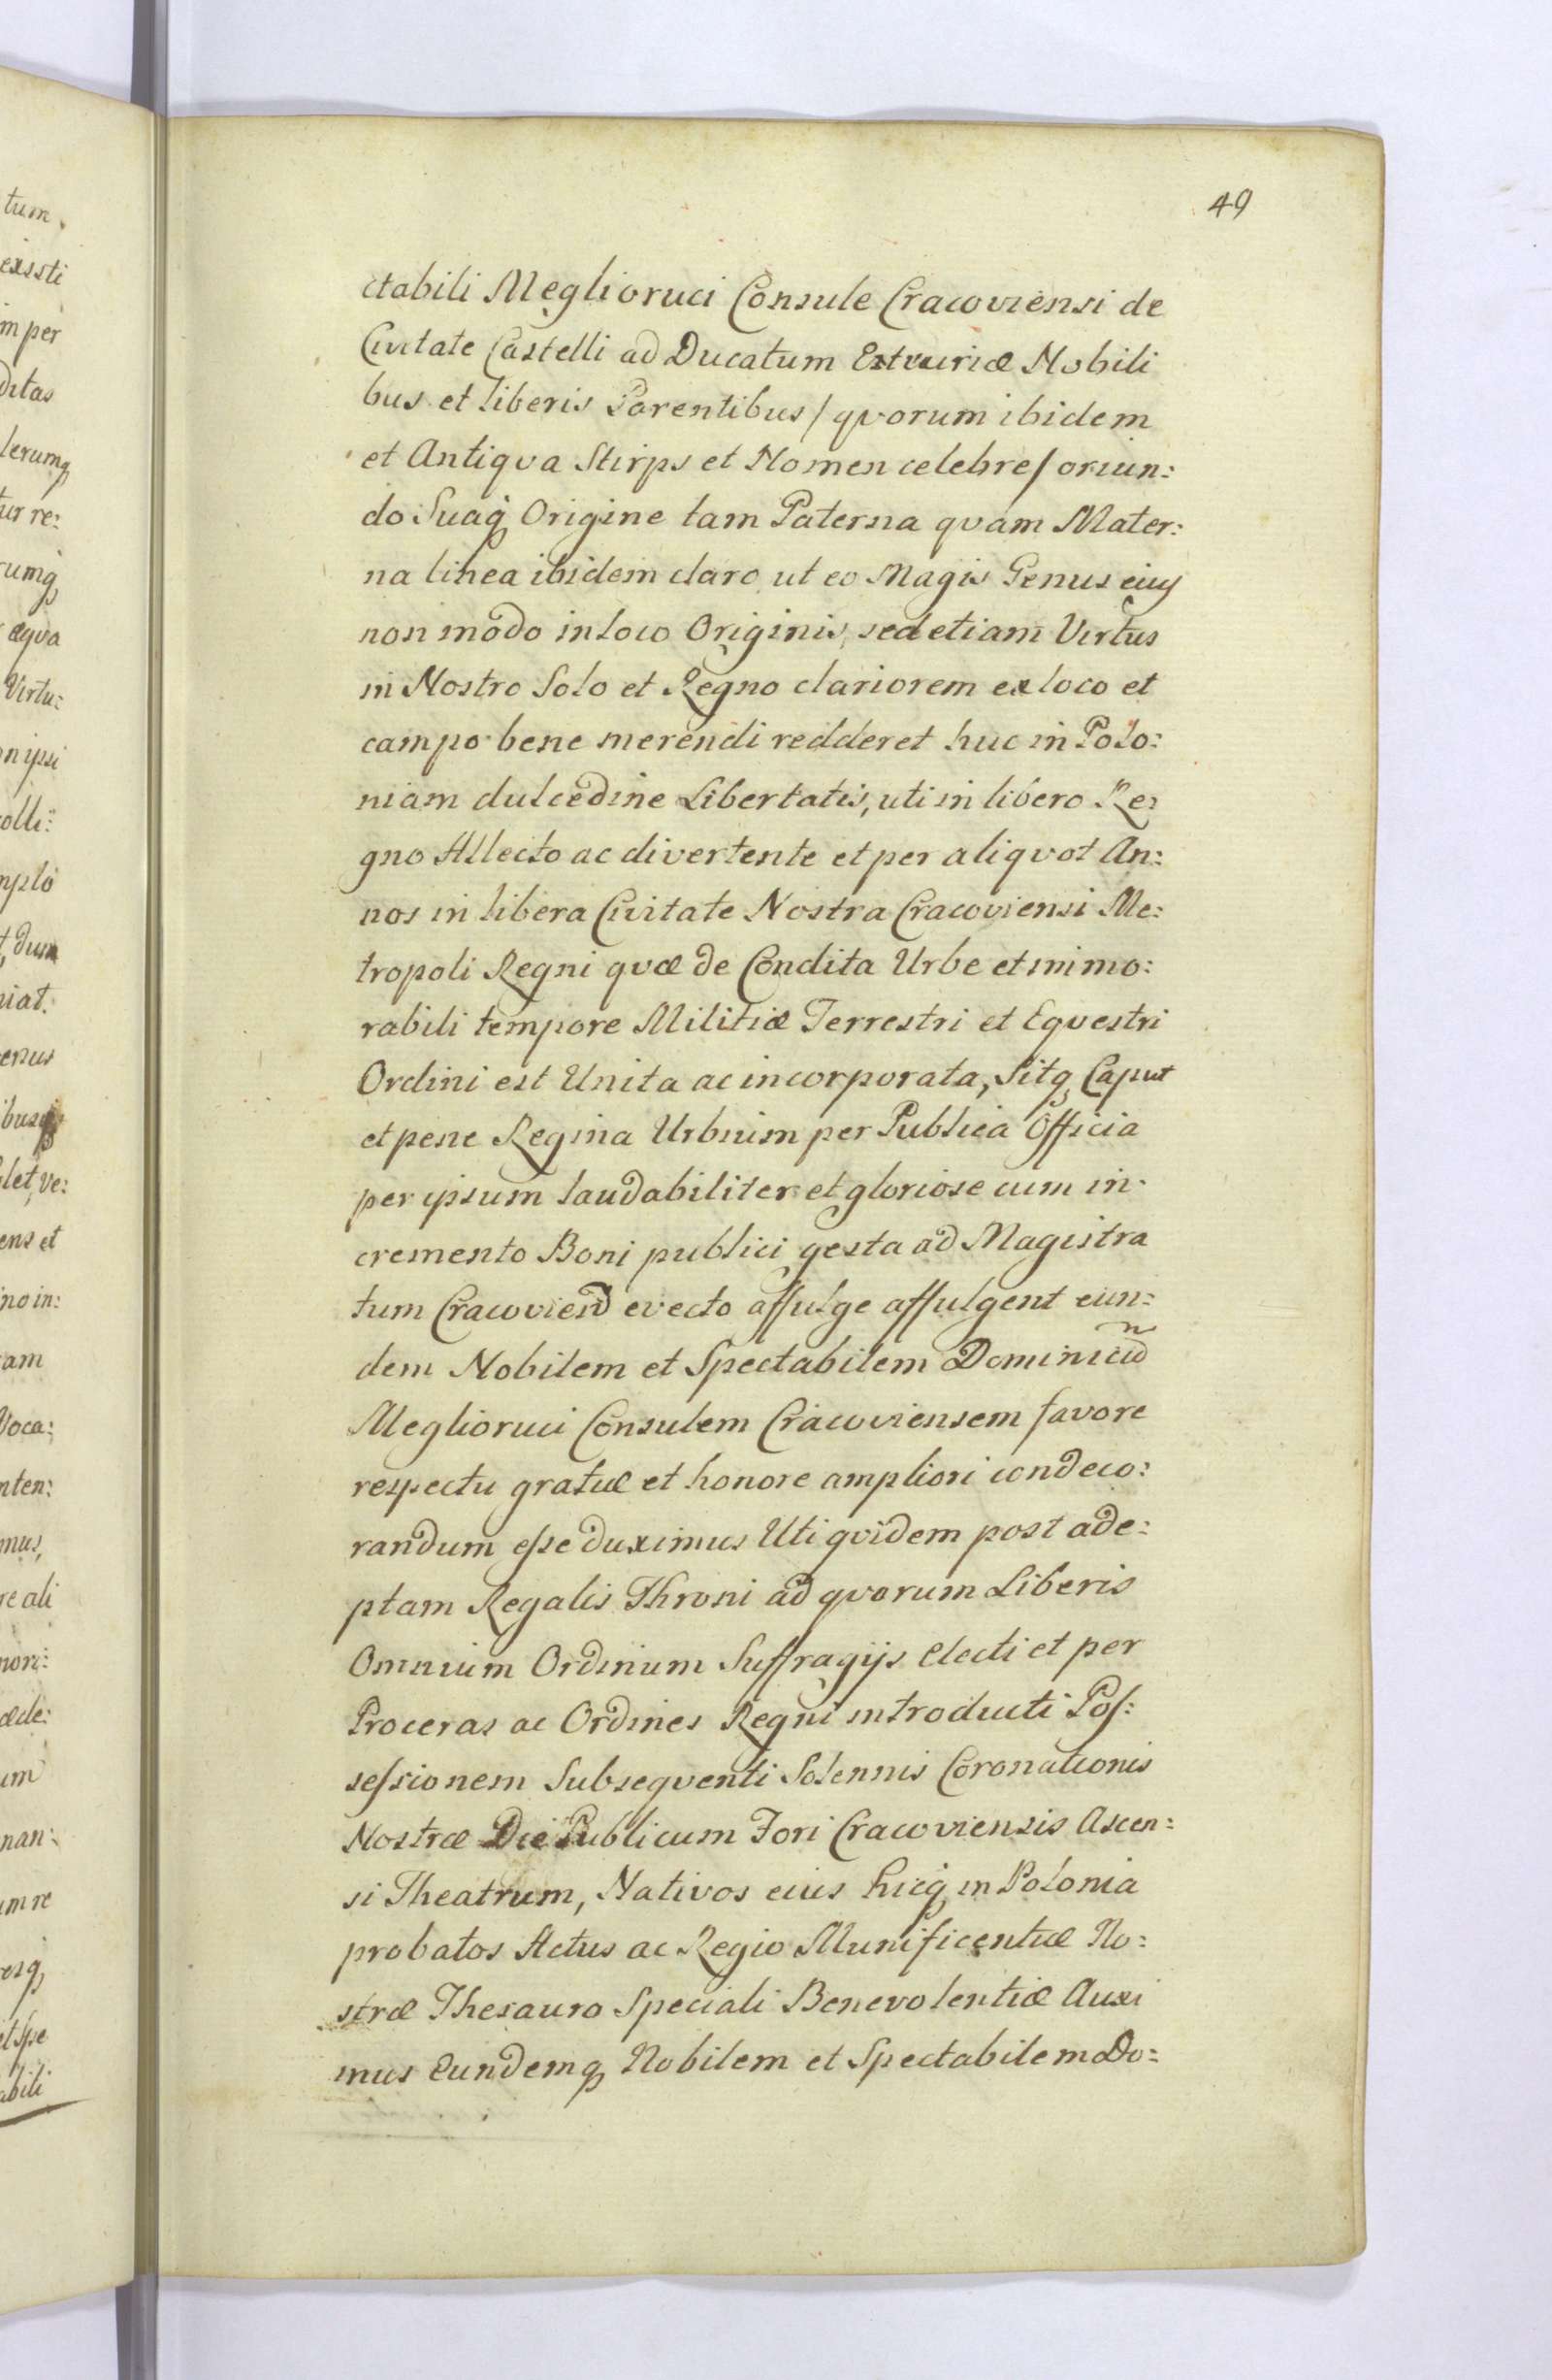 49
ctabili Meglioruci Consule Cracoviensi de
Civitate Castelli ad Ducatum Etruriæ Nobili
bus et liberis Parentibus / qvorum ibidem
et Antiqva Stirps et Nomen celebre / oriun:
do Suaq Origine tam Paterna qvam Mater:
na linea ibidem claro ut eo Magis Genus eius
non modo in loco Originis, sed etiam Virtus
in Nostro Solo et Regno clariorem ex loco et
campo bene merendi redderet huc in Polo:
niam dulcedine Libertatis, uti in libero Re:
gno Allecto ac divertente et per aliqvot An:
nos in libera Civitate Nostra Cracoviensi Me:
tropoli Regni qvæ de Condita Urbe et inimo:
rabili tempore Militiæ Terrestri et Eqvestri
Ordini est Unita ac incorporata, Sitq Caput
et pene Regina Urbium per Publica Officia
per ipsum laudabiliter et gloriose cum in:
cremento Boni publici gesta ad Magistra
tum Cracovien evecto affulge affulgent eun:
dem Nobilem et Spectabilem Dominicū
Meglioruci Consulem Cracoviensem favore
respectu gratiæ et honore ampliori condeco:
randum esse duximus Uti qvidem post ade:
ptam Regalis Throni ad qvorum Liberis
Omnium Ordinum Suffragijs electi et per
Proceras ac Ordines Regni introducti Pos:
sessionem Subseqventi Solennis Coronationis
Nostræ Die Publicum Fori Cracoviensis Ascen:
si Theatrum, Nativos eius hicq in Polonia
probatos Actus ac Regio Munificentiæ No:
stræ Thesauro Speciali Benevolentiæ Auxi
mus Eundemq Nobilem et Spectabilem Do: